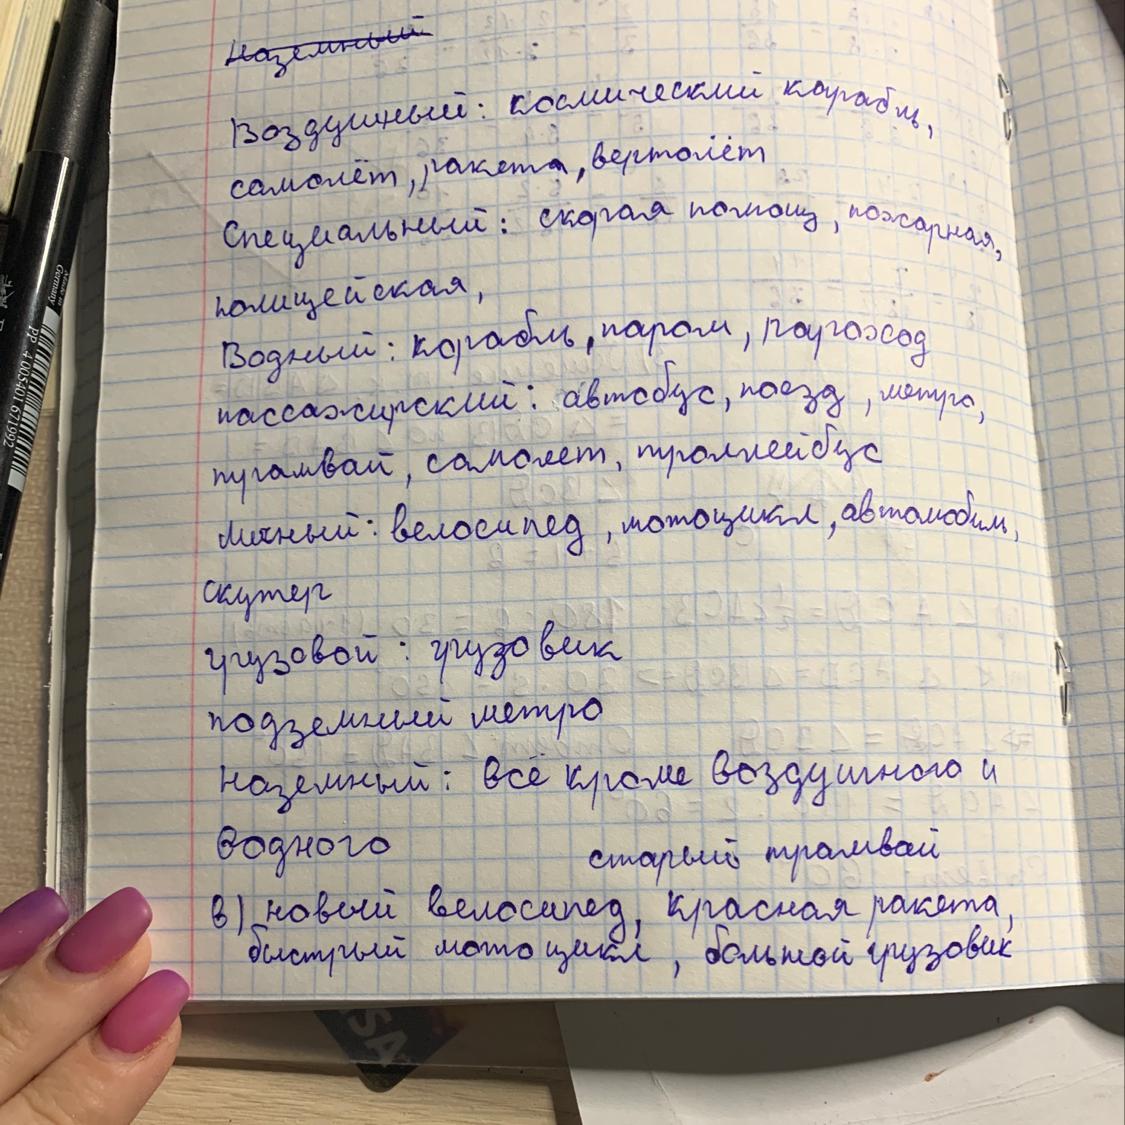 Наземный
Воздушный: космический карабль,
самолёт, ракета, вертолёт
Специальный: скорая помощ, пожарная,
полицейская,
Водный: корабль, паром, пароход
пассажирский: автобус, поезд, метро,
трамвай, самолет, троллейбус
Личный: велосипед, мотоцикл, автомобил,
скутер
грузовой: грузовик
подземный метро
наземный: всё кроме воздушного и
водного
старый трамвай
в) новый велосипед, красная ракета,
быстрый мотоцикл, большой грузовик
Made in
Germany
PP 4 005401 671992